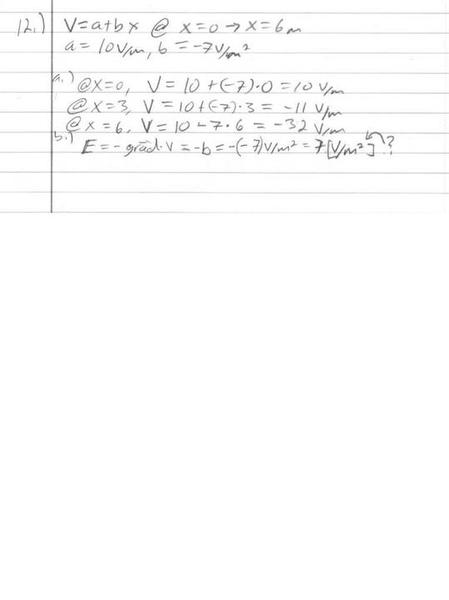 12.) V=a+bx @ x=0→x=6m
a=10V/m, b=-7V/m²
a.) @x=0, V=10+(-7)·0=10V/m
@x=3, V=10+(-7)·3=-11V/m
@x=6, V=10-7·6=-32V/m
b.) E=-grad·V=-b=-(-7)V/m²=7[V/m²]?